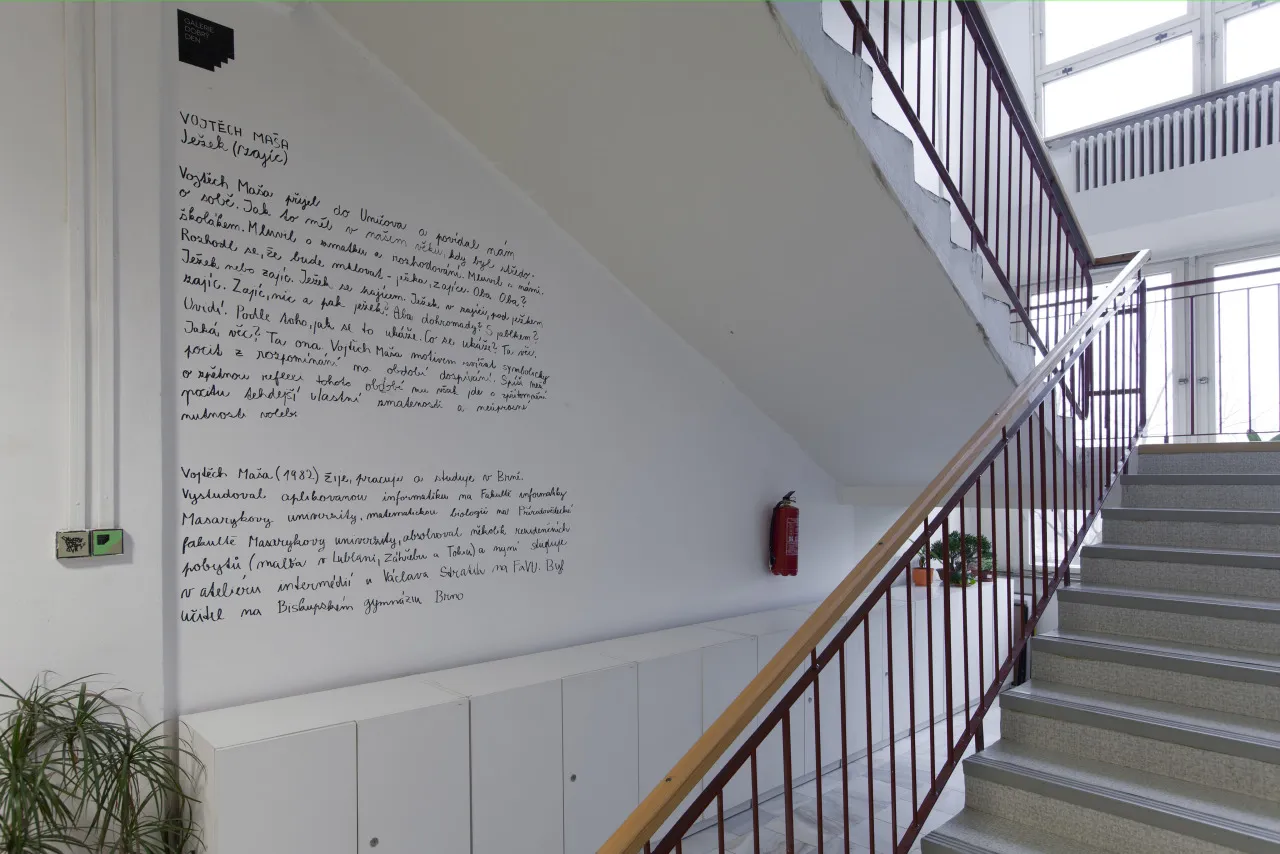 GALERIE
DOBRÝ
DEN
VOJTĚCH MAŠA
Ježek (zajíc)
Vojtěch Maša přijel do Uničova a povídal nám
o sobě. Jak to měl v našem věku, kdy byl středo-
školákem. Mluvil o zmatku a rozhodování. Mluvil s námi.
Rozhodl se, že bude malovat - ježka, zajíce. Oba. Oba?
Ježek nebo zajíc. Ježek se zajícem. Ježek v zajíci, pod ježkem
zajíc. Zajíc, nic a pak ježek? Aba dohromady? S jablkem?
Uvidí. Podle toho, jak se to ukáže. Co se ukáže? Ta věc.
Jaká věc? Ta ona. Vojtěch Maša motivem zvířat symbolicky
pocit z rozpomínání na období dospívání. Spíš než
o zpětnou reflexi tohoto období mu však jde o zpřítomnění
pocitu tehdejší vlastní zmatenosti a neúprosné
nutnosti voleb.
Vojtěch Maša (1982) žije, pracuje a studuje v Brně.
Vystudoval aplikovanou informatiku na Fakultě informatiky
Masarykovy univerzity, matematickou biologii na Přírodovědecké
fakultě Masarykovy univerzity, absolvoval několik rezidenčních
pobytů (malba v Lublani, Záhřebu a Tokiu) a nyní studuje
v ateliéru intermédií u Václava Stratila na FaVU. Byl
učitel na Biskupském gymnáziu Brno